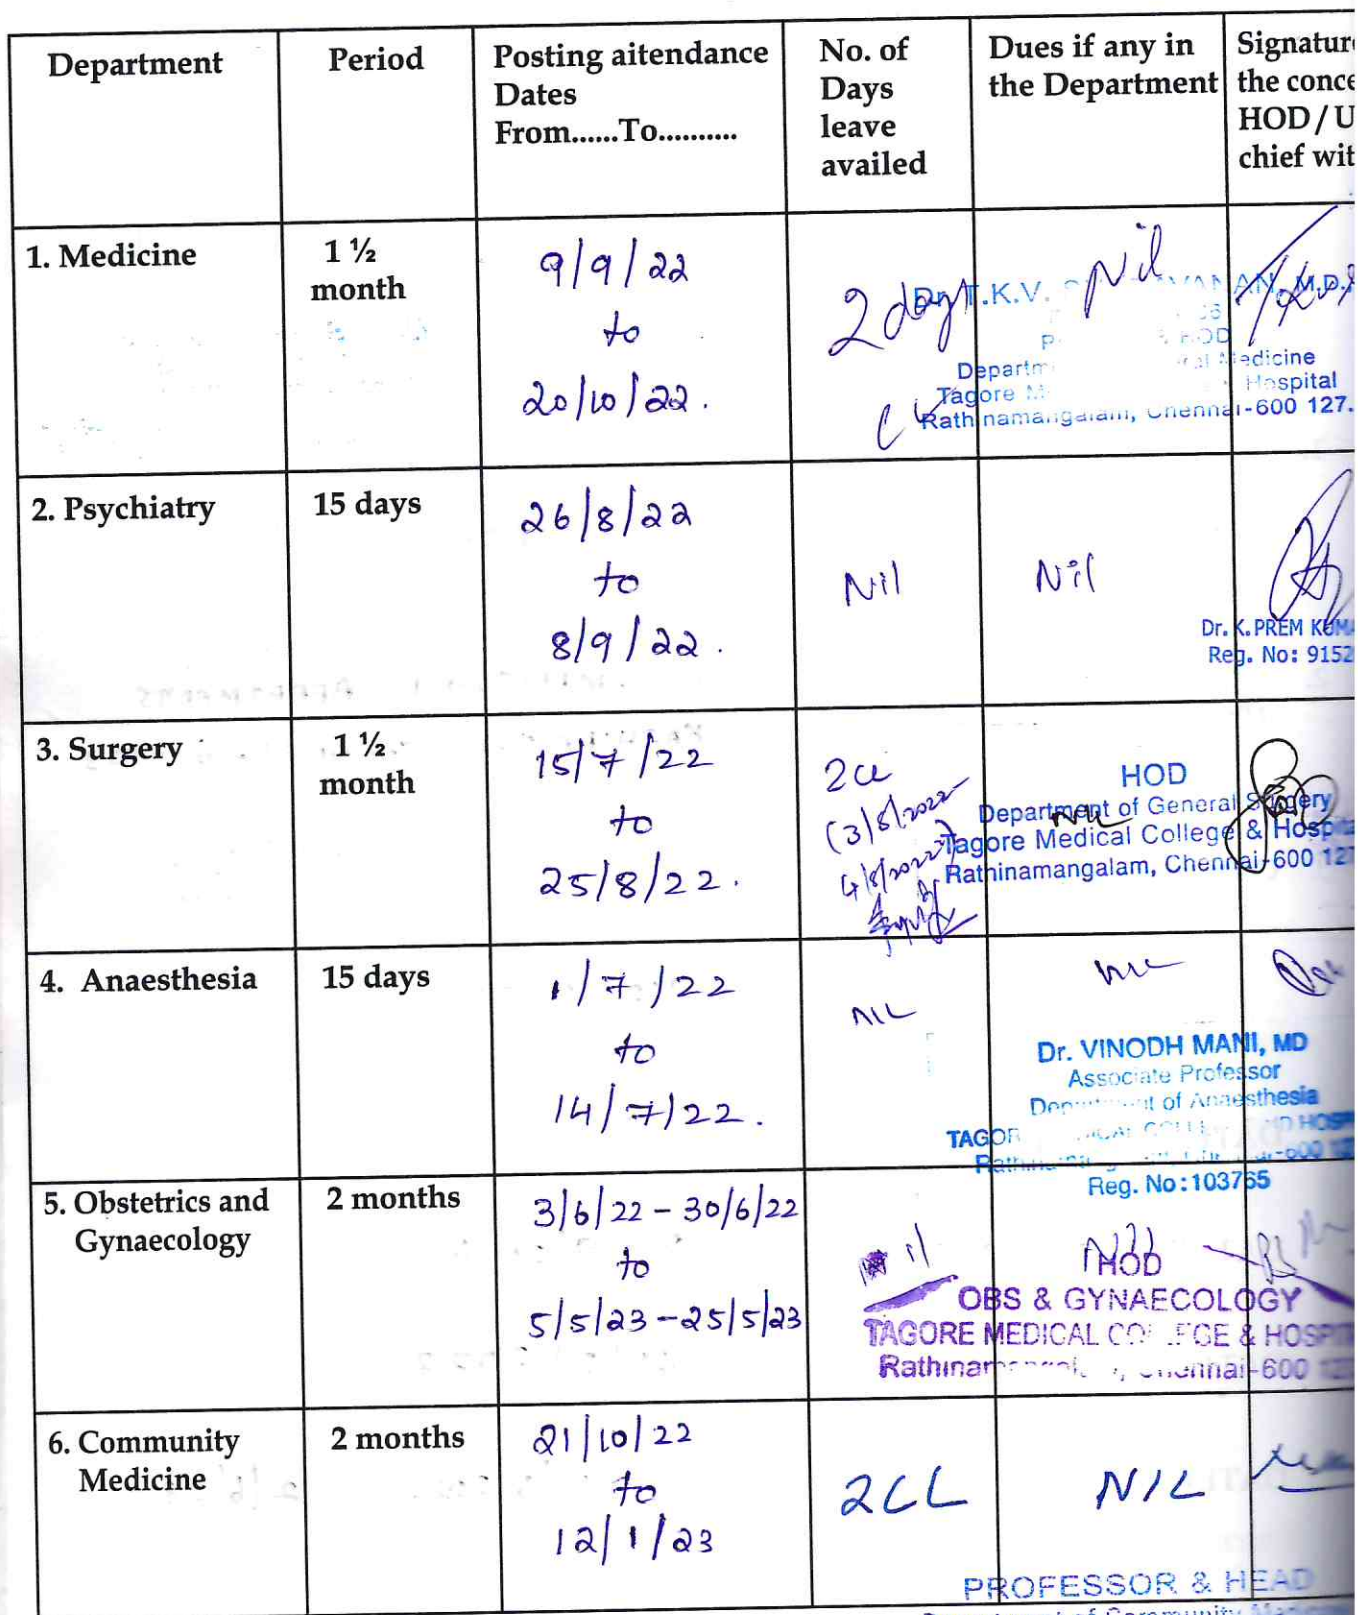 Department
Period
Posting aitendance
Dates
From......To..........
No. of
Days
leave
availed
Dues if any in
the Department
Signature
the conce
HOD / U
chief wit
1. Medicine
1 ½
month
9/9/22
to
20/10/22.
2 days
Nil
T.K.V. AN, M.D.,
HOD
Departm Medicine
Tagore M Hospital
Rathinamangalam, Chennai-600 127.
2. Psychiatry
15 days
26/8/22
to
8/9/22.
Nil
Nil
Dr. K. PREM KUMA
Reg. No: 9152
3. Surgery
1 ½
month
15/7/22
to
25/8/22.
2 CL
(3/8/2022
4/8/2022)
NIL
HOD
Department of General Surgery
Tagore Medical College & Hospita
Rathinamangalam, Chennai-600 127
4. Anaesthesia
15 days
1/7/22
to
14/7/22.
NIL
NIL
Dr. VINODH MANI, MD
Associate Professor
Department of Anaesthesia
TAGOR ICAL COLL ND HOSP
Reg. No:103765
5. Obstetrics and
Gynaecology
2 months
3/6/22 - 30/6/22
to
5/5/23 - 25/5/23
Nil
HOD
OBS & GYNAECOLOGY
TAGORE MEDICAL COLLEGE & HOSPIT
Rathinam Chennai-600
6. Community
Medicine
2 months
21/10/22
to
12/1/23
2CL
NIL
PROFESSOR & HEAD